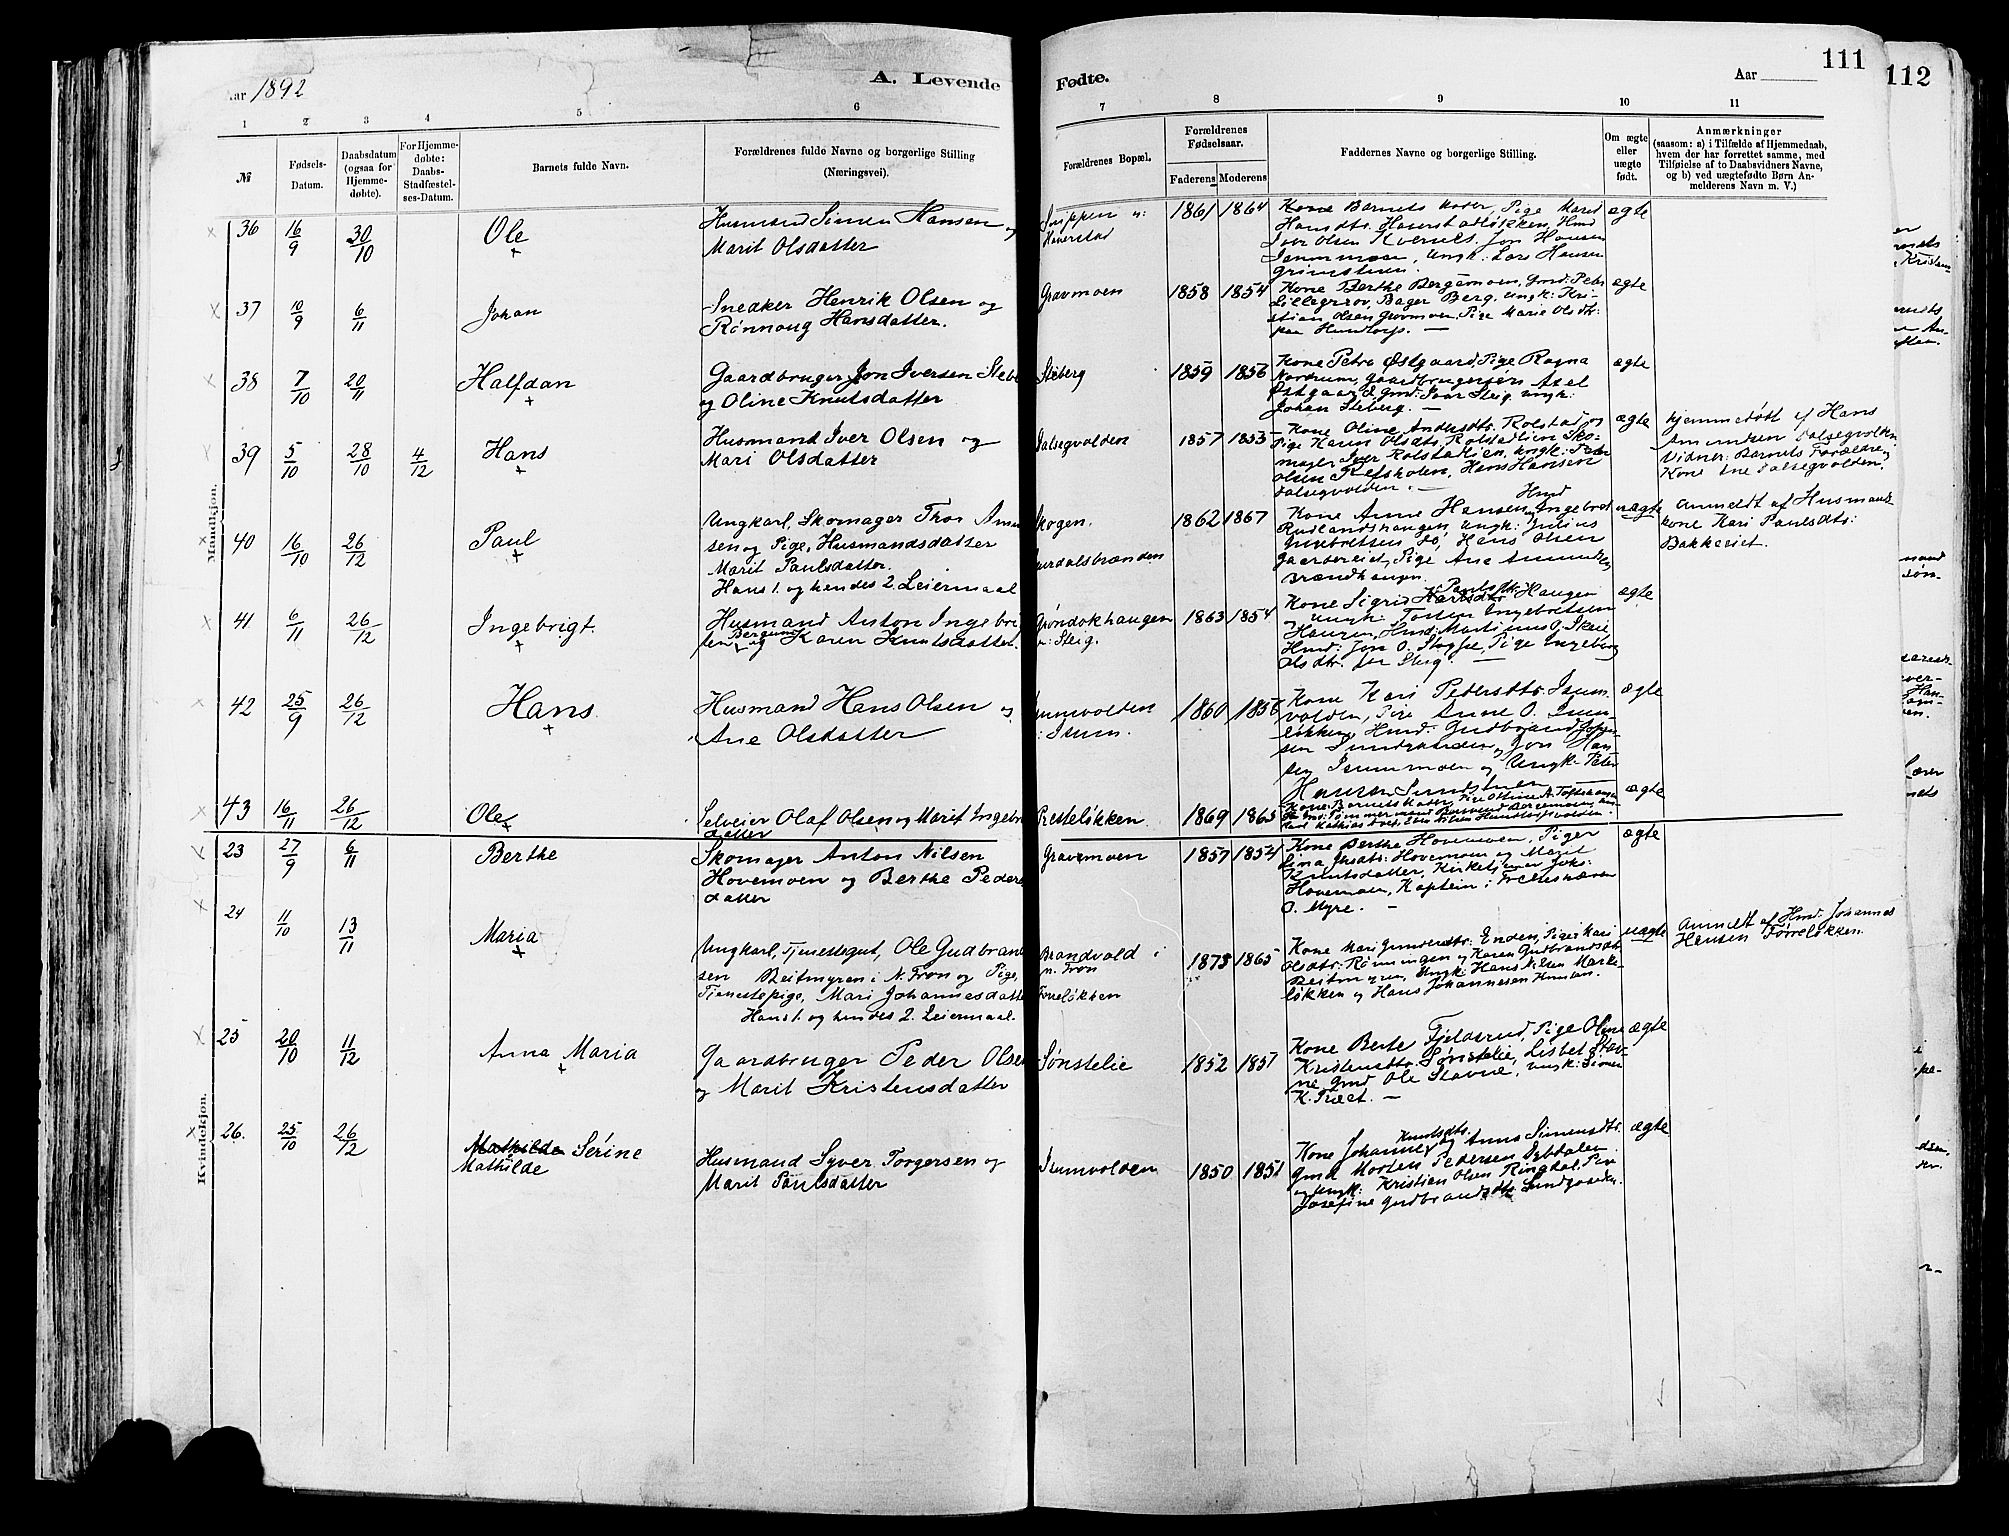 Aar 1892
A. Levende
Fødte.
Aar
111
112
1
2
3
4
5
6
7
8
9
10
11
№
Fødsels-
Datum.
Daabsdatum
(ogsaa for
Hjemme-
døbte).
For Hjemme-
døbte:
Daabs-
Stadfæstel-
ses-Datum.
Barnets fulde Navn.
Forældrenes fulde Navne og borgerlige Stilling
(Næringsvei).
Forældrenes Bopæl.
Forældrenes
Fødselsaar.
Faderens
Moderens
Faddernes Navne og borgerlige Stilling.
Om ægte
eller
uægte
født.
Anmærkninger
(saasom: a) i Tilfælde af Hjemmedaab,
hvem der har forrettet samme, med
Tilføielse af to Daabsvidners Navne,
og b) ved uægtefødte Børn An-
melderens Navn m. V.)
Mandkjøn.
36 16/9 30/10 Ole
Husmand Simen Hansen og
Marit Olsdatter
Haverstad
1861 1864
Kone Barnets Moder, Pige Marit
Hansdtr. Haverstadløkken, Hmd
Iver Olsen Kvernes, Jon Hansen
Isummoen, Ungk. Lars Hansen
ægte
37 10/9 6/11 Johan
Snedker Henrik Olsen og
Rønnoug Hansdatter.
Gravmoen
1858 1854
Kone Berthe Bergemoen, Gmd: Peder
Lillegrav, Bager Berg, Ungk: Kri-
stian Olsen Gravmoen, Pige Marie Olsdtr:
paa Hundtorp. —
ægte
38 7/10 20/11 Halfdan
Gaardbruger Jon Iversen Steberg
og Oline Knutsdatter
Steberg
1859 1856
Kone Petra Østgaard, Pige Ragna
Nordrum, Gaardbrugersøn Axel
Østgaard, Gmd: Ivar Steig, Ungk:
Johan Steberg. —
ægte
39 5/10 28/10 4/12 Hans
Husmand Iver Olsen og
Mari Olsdatter
Dalsegvolden
1857 1853
Kone Oline Andersdtr. Rolstad og
Pige Karen Olsdtr. Rolstadlien, Sko-
mager Iver Rolstadlien, Ungk: Peder
Olsen Refsholen, Hans Hansen
Dalsegvolden. —
ægte
Hjemmedøbt af Hans
Amundsen Dalsegvolden
Vidner: Barnets Forældre og
Kone Ane Dalsegvolden.
40 16/10 26/12 Paul
Ungkarl, Skomager Thor Amund
sen og Pige, Husmandsdatter
Marit Paulsdatter.
Hans 1. og hendes 2. Leiermaal
Skogen.
1862 1867
Kone Anne Hansen, Hmd Ingebret
Rudlandshaugen, Ungk: Julius
Ingebretsen, Hans Olsen
Pige Ane Amundsen
Brændhaugen
uægte
Anmeldt af Husmands-
kone Kari Paulsdtr:
Bakkeriet.
41 6/11 26/12 Ingebrigt.
Husmand Anton Ingebrigt
sen Bergum og Karen Knutsdatter.
Grøndokhaugen
u: Steig.
1863 1854
Kone Sigrid Paulsdtr. Haugen
Ungk: Torsten Ingebretsen
Haugen, Hmd: Martinus O. Skeie
Hmd: Jon O. Stoppe, Pige Ingeborg
Olsdtr. fra Steig. —
ægte
42 25/9 26/12 Hans
Husmand Hans Olsen og
Ane Olsdatter
Isumvolden
u: Isum.
1860 1856
Kone Kari Pedersdtr. Isum-
volden, Pige Anne O. Isum-
løkken, Hmd: Gudbrand Johan-
sen Sundgaarden, Jon Han-
sen Isummoen og Ungk: Peter
Hansen
ægte
43 16/11 26/12 Ole
Selveier Olaf Olsen og Marit Ingebrigts
datter
Presteløkken
1869 1865
Kone Barnets Moder, Pige Oline A.
ægte
Kvindekjøn.
23 27/9 6/11 Berthe
Skomager Anton Nilsen
Hovemoen og Berthe Peders
datter
Gravemoen
1857 1854
Kone Berthe Hovemoen, Piger
Lina Jensdtr. Hovemoen og Marit
Knutsdatter, Kirketjener Johs:
Hovemoen, Kaptein i Frelseshæren
O. Myre. —
ægte
24 11/10 13/11 Maria
Ungkarl, Tjenestegut, Ole Gudbrand
sen Beitmyren i N. Fron og Pige,
Tjenestepige, Mari Johannesdatter
Hans 1. og hendes 2. Leiermaal.
Brandvold i
N. Fron
Forreløkken
1873 1865
Kone Mari Gundersdtr. Enden, Piger Kari
Olsdtr: Rønningen og Karen Gudbrandsdtr
Beitmyren, Ungk: Hans Nilsen Marke-
løkken og Hans Johannesen
uægte
Anmeldt af Hmd: Johannes
Hansen Forreløkken.
25 20/10 11/12 Anna Maria
Gaardbruger Peder Olsen
og Marit Kristensdatter
Sønstelie
1852 1857
Kone Berte Fjeldsrud, Pige Oline
Kristensdtr. Sønstelie, Lisbet Stav-
ne, Gmd Ole Stavne, Ungk: Simen
K. Træet. —
ægte
26. 25/10 26/12 Mathilde Serine
Mathilde
Husmand Syver Torgersen og
Marit Paulsdatter
Isumvolden
1850 1851
Kone Johanne Knutsdtr. og Anna Simensdtr.
Gmd Morten Pedersen Dybdalen
og Ungk: Kristian Olsen Ringdal, Pige
Josefine Gudbrandsdtr. Sundgaarden.
ægte